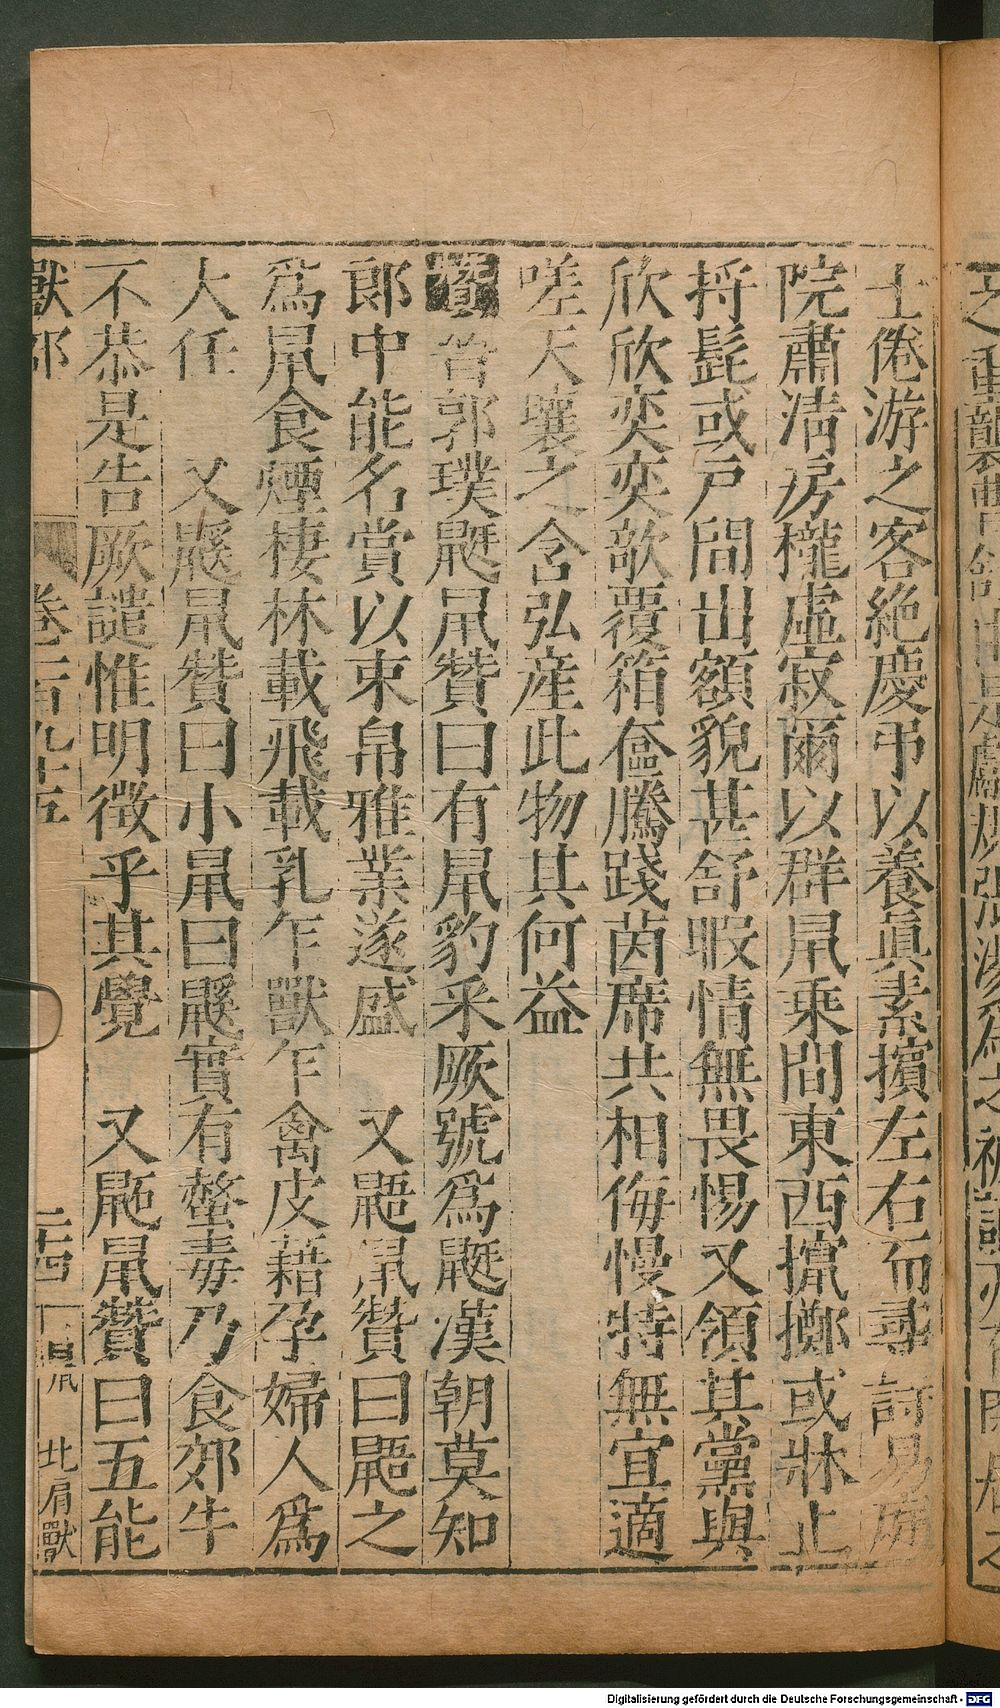 士倦游之客絶慶弔以養眞素擯左右而尋討易
院肅清房櫳虛寂爾以群鼠乗間東西攛擲或牀上
捋髭或戸間出額貌甚舒暇情無畏惕又領其黨與
欣欣奕奕歌覆箱奩騰踐茵席共相侮慢特無宜適
嗟天壤之含弘産此物其何益
贊晉郭璞鼮鼠贊曰有鼠豹釆厥號爲鼮漢朝莫知
郎中能名賞以束帛雅業遂盛 又鼯鼠贊曰鼯之
爲鼠食煙棲林載飛載乳乍獸乍禽皮藉孕婦人爲
大任 又鼷鼠贊曰小鼠曰鼷實有螫毒乃食郊牛
不恭是告厥譴惟明徴乎其覺 又鼫鼠贊曰五能
獸部 卷二百九十五 二十四 鼠 比肩獸
Digitalisierung gefördert durch die Deutsche Forschungsgemeinschaft - DFG